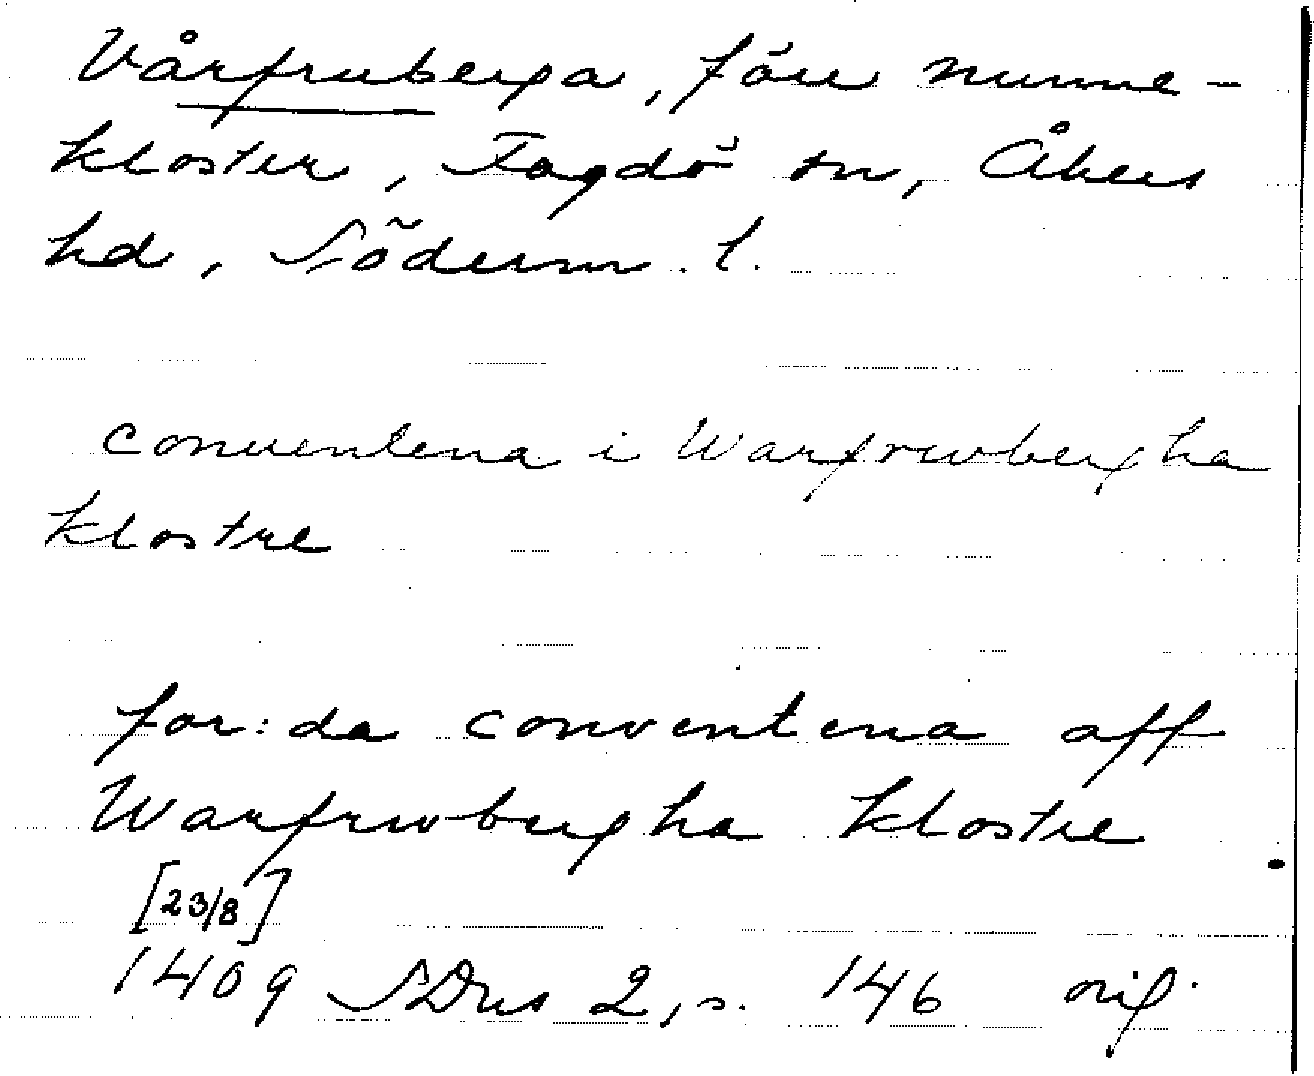 Vårfruberga, förr nunne-
kloster, Fogdö sn, Åkers
hd, Söderm. l.
conuentena i Warfrwbergha
klostre
for:da conventena aff
Warfrwbergha klostre
[23/8]
1409 SDns 2, s. 146 orig.